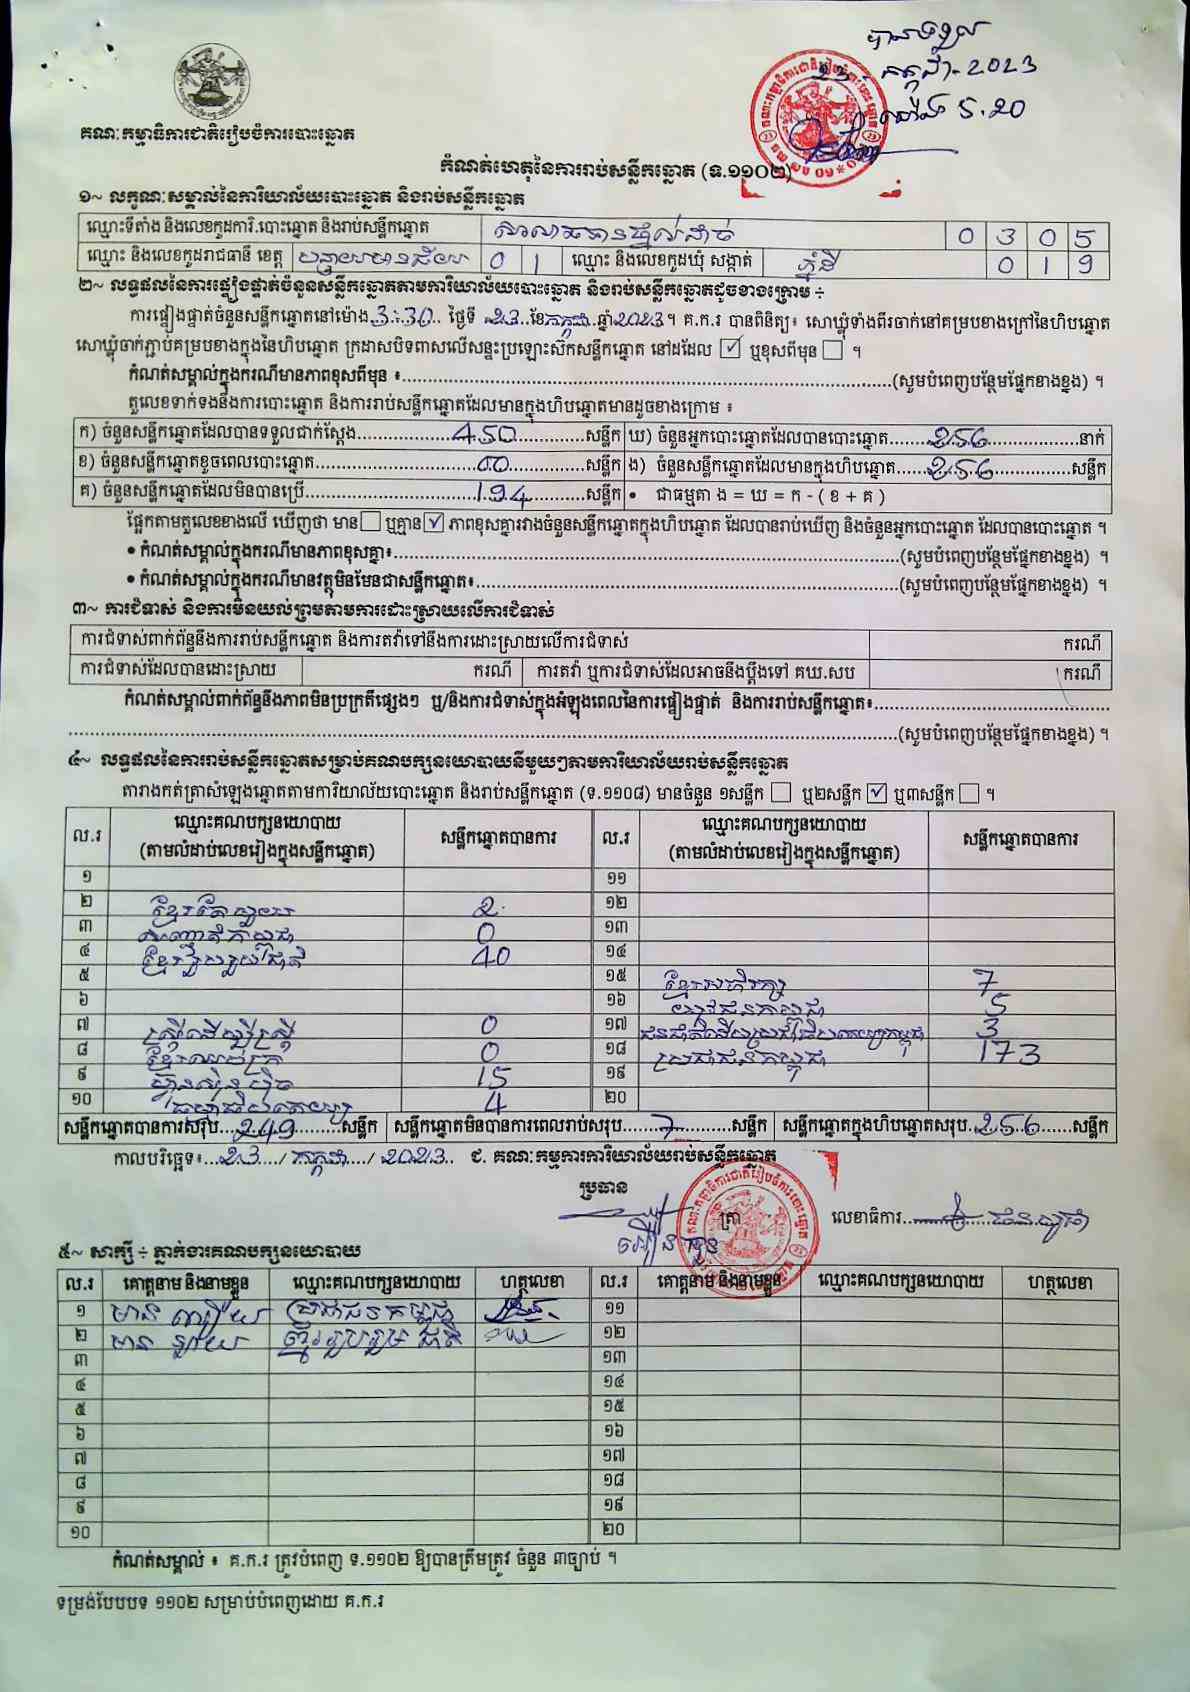 បានទទួល
23-កក្កដា-2023
ម៉ោង 5.20
គណៈកម្មាធិការជាតិរៀបចំការបោះឆ្នោត
កំណត់ហេតុនៃការរាប់សន្លឹកឆ្នោត (ទ.១១០២)
១~ លក្ខណៈសម្គាល់នៃការិយាល័យបោះឆ្នោត និងរាប់សន្លឹកឆ្នោត
ឈ្មោះទីតាំង និងលេខកូដការិ.បោះឆ្នោត និងរាប់សន្លឹកឆ្នោត 0 3 0 5
ឈ្មោះ និងលេខកូដរាជធានី ខេត្ត បន្ទាយមានជ័យ 0 1 ឈ្មោះ និងលេខកូដឃុំ សង្កាត់ 0 1 9
២~ លទ្ធផលនៃការផ្ទៀងផ្ទាត់ចំនួនសន្លឹកឆ្នោតតាមការិយាល័យបោះឆ្នោត និងរាប់សន្លឹកឆ្នោតដូចខាងក្រោម ÷
ការផ្ទៀងផ្ទាត់ចំនួនសន្លឹកឆ្នោតនៅម៉ោង 3:30 ថ្ងៃទី 23 ខែកក្កដា ឆ្នាំ2023។ គ.ក.រ បានពិនិត្យ៖ សោឃ្លុំទាំងពីរចាក់នៅគម្របខាងក្រៅនៃហិបឆ្នោត
សោឃ្លុំចាក់ភ្ជាប់គម្របខាងក្នុងនៃហិបឆ្នោត ក្រដាសបិទពាសលើសន្ទះប្រឡោះស៊កសន្លឹកឆ្នោត នៅដដែល ☑ ឬខុសពីមុន ☐ ។
កំណត់សម្គាល់ក្នុងករណីមានភាពខុសពីមុន ៖ (សូមបំពេញបន្ថែមផ្នែកខាងខ្នង) ។
តួលេខទាក់ទងនឹងការបោះឆ្នោត និងការរាប់សន្លឹកឆ្នោតដែលមានក្នុងហិបឆ្នោតមានដូចខាងក្រោម ៖
ក) ចំនួនសន្លឹកឆ្នោតដែលបានទទួលជាក់ស្តែង 450 សន្លឹក ឃ) ចំនួនអ្នកបោះឆ្នោតដែលបានបោះឆ្នោត 256 នាក់
ខ) ចំនួនសន្លឹកឆ្នោតខូចពេលបោះឆ្នោត 00 សន្លឹក ង) ចំនួនសន្លឹកឆ្នោតដែលមានក្នុងហិបឆ្នោត 256 សន្លឹក
គ) ចំនួនសន្លឹកឆ្នោតដែលមិនបានប្រើ 194 សន្លឹក • ជាធម្មតា ង = ឃ = ក - ( ខ + គ )
ផ្អែកតាមតួលេខខាងលើ ឃើញថា មាន ☐ ឬគ្មាន ☑ ភាពខុសគ្នារវាងចំនួនសន្លឹកឆ្នោតក្នុងហិបឆ្នោត ដែលបានរាប់ឃើញ និងចំនួនអ្នកបោះឆ្នោត ដែលបានបោះឆ្នោត ។
• កំណត់សម្គាល់ក្នុងករណីមានភាពខុសគ្នា៖ (សូមបំពេញបន្ថែមផ្នែកខាងខ្នង) ។
• កំណត់សម្គាល់ក្នុងករណីមានវត្ថុមិនមែនជាសន្លឹកឆ្នោត៖ (សូមបំពេញបន្ថែមផ្នែកខាងខ្នង) ។
៣~ ការជំទាស់ និងការមិនយល់ព្រមតាមការដោះស្រាយលើការជំទាស់
ការជំទាស់ពាក់ព័ន្ធនឹងការរាប់សន្លឹកឆ្នោត និងការតវ៉ាទៅនឹងការដោះស្រាយលើការជំទាស់ ករណី
ការជំទាស់ដែលបានដោះស្រាយ ករណី ការតវ៉ា ឬការជំទាស់ដែលអាចនឹងប្តឹងទៅ គឃ.សប ករណី
កំណត់សម្គាល់ពាក់ព័ន្ធនឹងភាពមិនប្រក្រតីផ្សេងៗ ឬ/និងការជំទាស់ក្នុងអំឡុងពេលនៃការផ្ទៀងផ្ទាត់ និងការរាប់សន្លឹកឆ្នោត៖
(សូមបំពេញបន្ថែមផ្នែកខាងខ្នង) ។
៤~ លទ្ធផលនៃការរាប់សន្លឹកឆ្នោតសម្រាប់គណបក្សនយោបាយនីមួយៗតាមការិយាល័យរាប់សន្លឹកឆ្នោត
តារាងកត់ត្រាសំឡេងឆ្នោតតាមការិយាល័យបោះឆ្នោត និងរាប់សន្លឹកឆ្នោត (ទ.១១០៨) មានចំនួន ១សន្លឹក ☐ ឬ២សន្លឹក ☑ ឬ៣សន្លឹក ☐ ។
ល.រ ឈ្មោះគណបក្សនយោបាយ (តាមលំដាប់លេខរៀងក្នុងសន្លឹកឆ្នោត) សន្លឹកឆ្នោតបានការ ល.រ ឈ្មោះគណបក្សនយោបាយ (តាមលំដាប់លេខរៀងក្នុងសន្លឹកឆ្នោត) សន្លឹកឆ្នោតបានការ
១ ១១
២ ខ្មែរតែមួយ 2 ១២
៣ 0 ១៣
៤ ខ្មែររួបរួមជាតិ 40 ១៤
៥ ១៥ ខ្មែរអភិរក្ស 7
៦ ១៦ យុវជនកម្ពុជា 5
៧ ស្ត្រីដើម្បីស្ត្រី 0 ១៧ ជនជាតិដើមប្រជាធិបតេយ្យកម្ពុជា 3
៨ ខ្មែរឈប់ក្រ 0 ១៨ ប្រជាជនកម្ពុជា 173
៩ ហ៊្វុនស៊ិនប៉ិច 15 ១៩
១០ ធម្មាធិបតេយ្យ 4 ២០
សន្លឹកឆ្នោតបានការសរុប 249 សន្លឹក សន្លឹកឆ្នោតមិនបានការពេលរាប់សរុប 7 សន្លឹក សន្លឹកឆ្នោតក្នុងហិបឆ្នោតសរុប 256 សន្លឹក
កាលបរិច្ឆេទ៖ 23 / កក្កដា / 2023 ជ. គណៈកម្មការការិយាល័យរាប់សន្លឹកឆ្នោត
ប្រធាន ត្រា លេខាធិការ
៥~ សាក្សី ÷ ភ្នាក់ងារគណបក្សនយោបាយ
ល.រ គោត្តនាម និងនាមខ្លួន ឈ្មោះគណបក្សនយោបាយ ហត្ថលេខា ល.រ គោត្តនាម និងនាមខ្លួន ឈ្មោះគណបក្សនយោបាយ ហត្ថលេខា
១ មាន ប្រជាជនកម្ពុជា ១១
២ មាន ខ្មែររួបរួមជាតិ ១២
៣ ១៣
៤ ១៤
៥ ១៥
៦ ១៦
៧ ១៧
៨ ១៨
៩ ១៩
១០ ២០
កំណត់សម្គាល់ ៖ គ.ក.រ ត្រូវបំពេញ ទ.១១០២ ឱ្យបានត្រឹមត្រូវ ចំនួន ៣ច្បាប់ ។
ទម្រង់បែបបទ ១១០២ សម្រាប់បំពេញដោយ គ.ក.រ